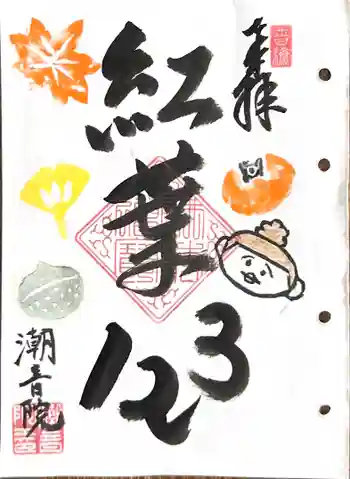 奉拝
紅葉
3
12
潮音院